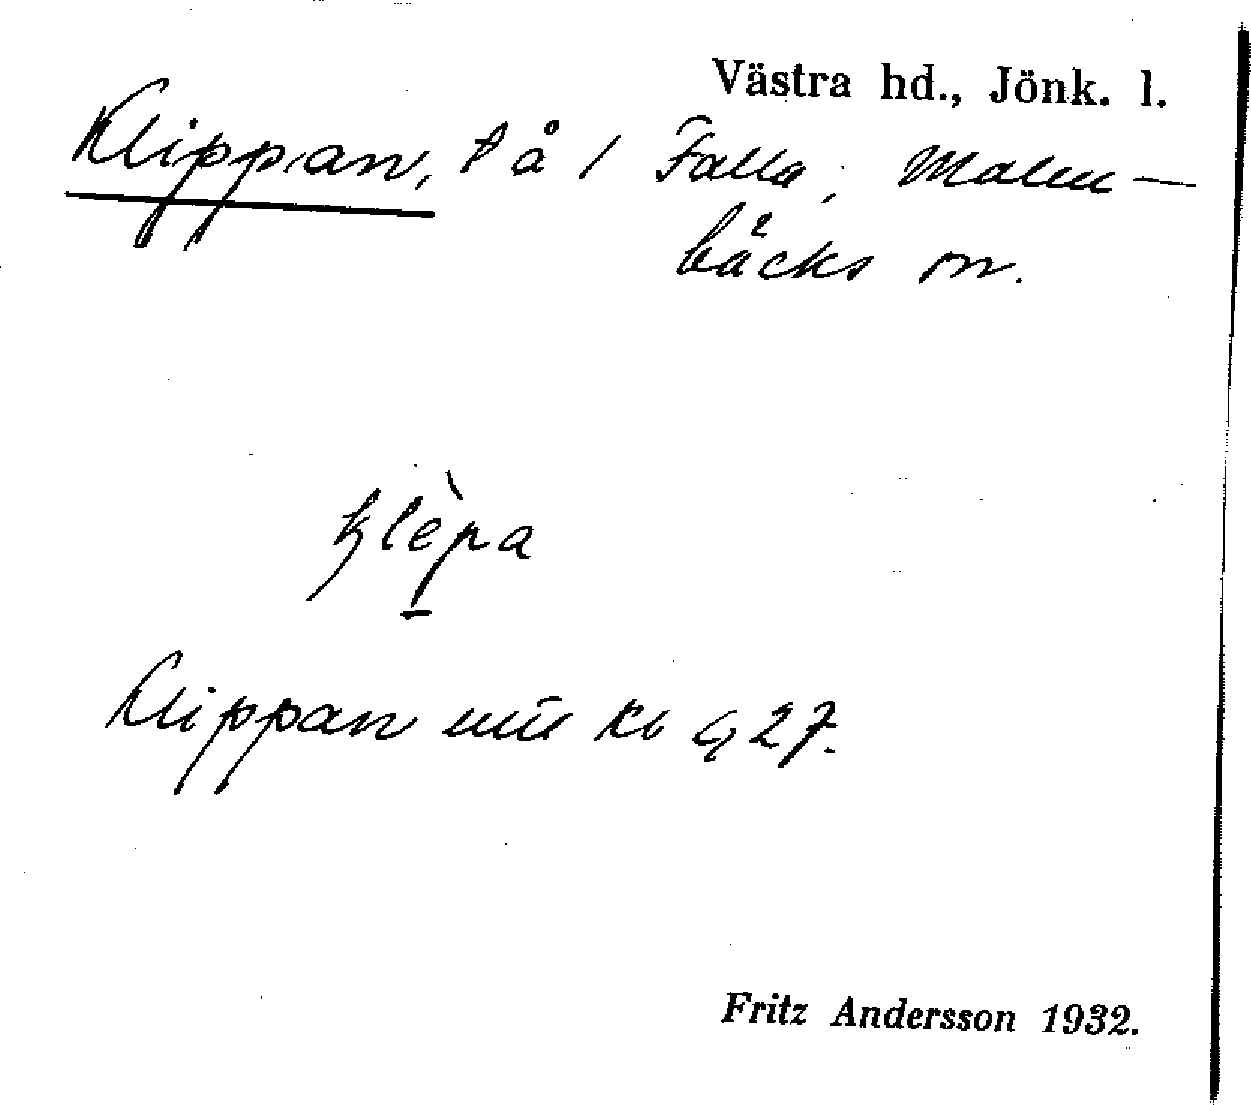 Västra hd., Jönk. l.
Klippan, t å 1 Falla, Malm-
bäcks sn.
klèpa
Klippan kb 27.
Fritz Andersson 1932.